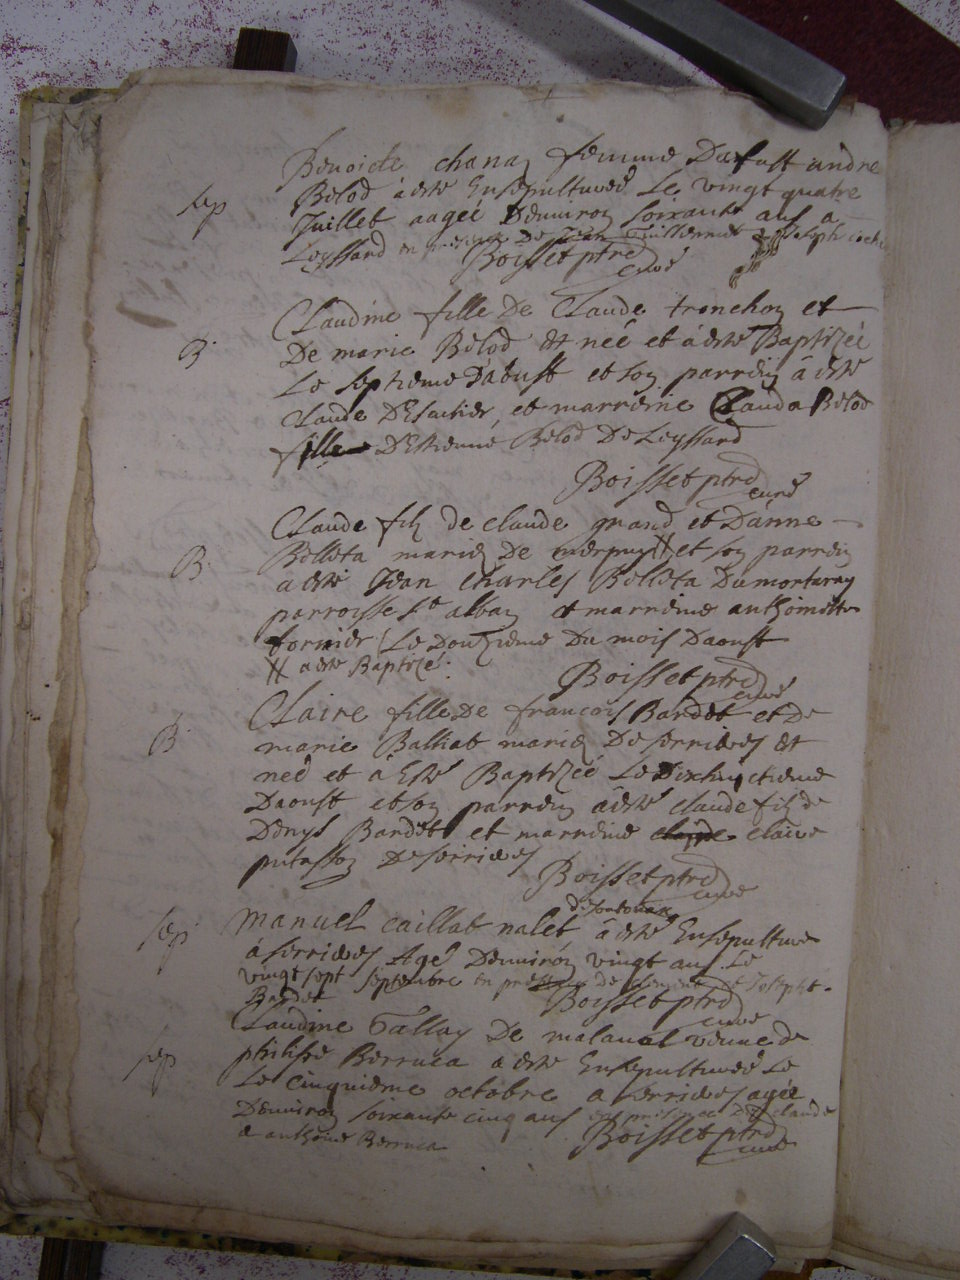 Benoicte chanay femme Dafust andre
sep Belod a esté Ensepulturéé Le vingt quatre
Juillet aagéé Denviron soixante ans a
Leyssard en presence De Jean Guillermet
Boisset ptre
curé
CLaudine fille De CLaude tronchon et
B. De marie Belod Et néé et a esté Baptizéé
Le septieme D'aoust et son parrein à esté
CLaude et marreine CLauda Belod
fille D'Estienne Belod De Leyssard
Boisset ptre
curé
CLaude fils de claude grand et D'anne
B. Belleta mariez De et son parrein
a esté Jean charles Belleta Du mortaray
parroisse St alban et marreine anthoinette
fornier Le Douzieme Du mois Daoust
# a esté Baptizé.
Boisset ptre
curé
CLaire fille De francois Bardet et De
B marie Balliat mariez De serrieres Et
néé et à Esté Baptizéé Le Dixhuictieme
Daoust et son parrein à esté claude fils de
Denys Bardet et marreine claire
putasson De serrieres
Boisset ptre
curé
sep manuel caillat nalet à esté Ensepulturé
à serrieres Agé Denviron vingt ans Le
vingt sept septembre en presence de et Joseph
Bardet
Boisset ptre
curé
CLaudine Tallay De malaval veuve de
sep philipe Berruca a esté Ensepulturéé Le
Le cinquieme octobre a serrieres agéé
Denviron soixante cinq ans en presence De claude
& anthoine Berruca
Boisset ptre
curé